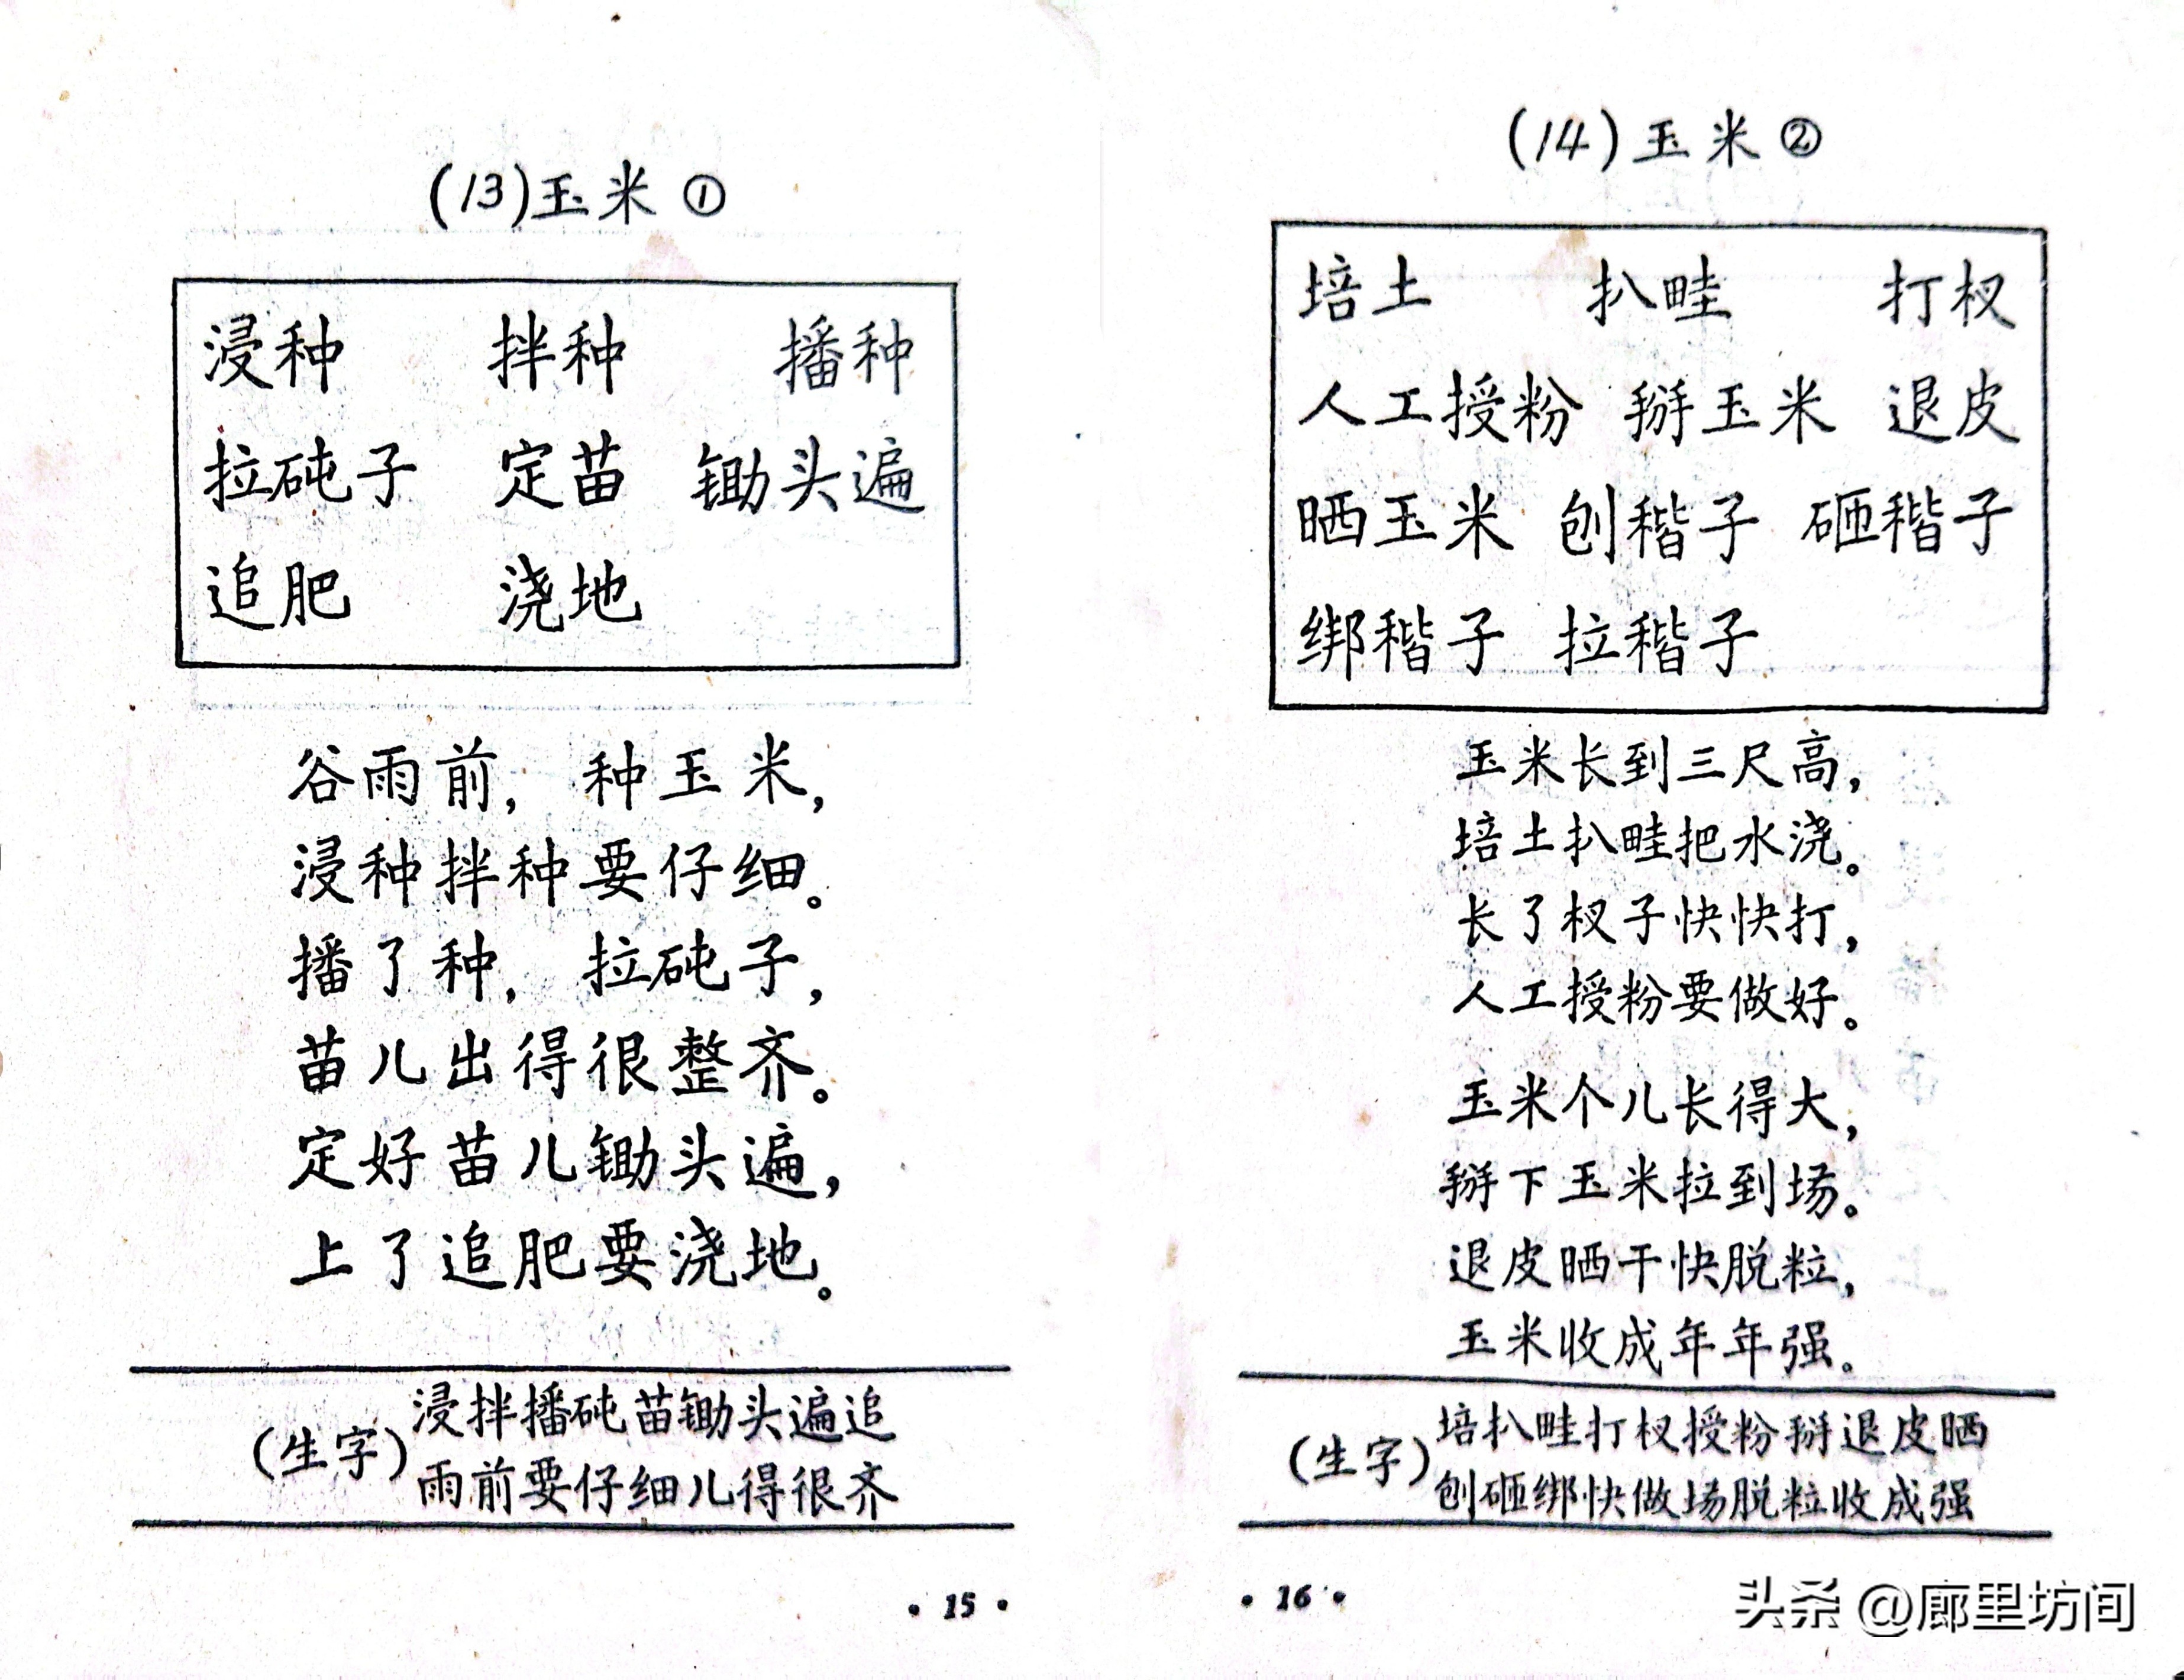 (13)玉米 ①
浸种 拌种 播种
拉砘子 定苗 锄头遍
追肥 浇地
谷雨前，种玉米，
浸种拌种要仔细。
播了种，拉砘子，
苗儿出得很整齐。
定好苗儿锄头遍，
上了追肥要浇地。
(生字)
浸拌播砘苗锄头遍追
雨前要仔细儿得很齐
·15·
(14)玉米 ②
培土 扒畦 打杈
人工授粉 掰玉米 退皮
晒玉米 刨稭子 砸稭子
绑稭子 拉稭子
玉米长到三尺高，
培土扒畦把水浇。
长了杈子快快打，
人工授粉要做好。
玉米个儿长得大，
掰下玉米拉到场。
退皮晒干快脱粒，
玉米收成年年强。
(生字)
培扒畦打杈授粉掰退皮晒
刨砸绑快做场脱粒收成强
·16·
头条 @廊里坊间